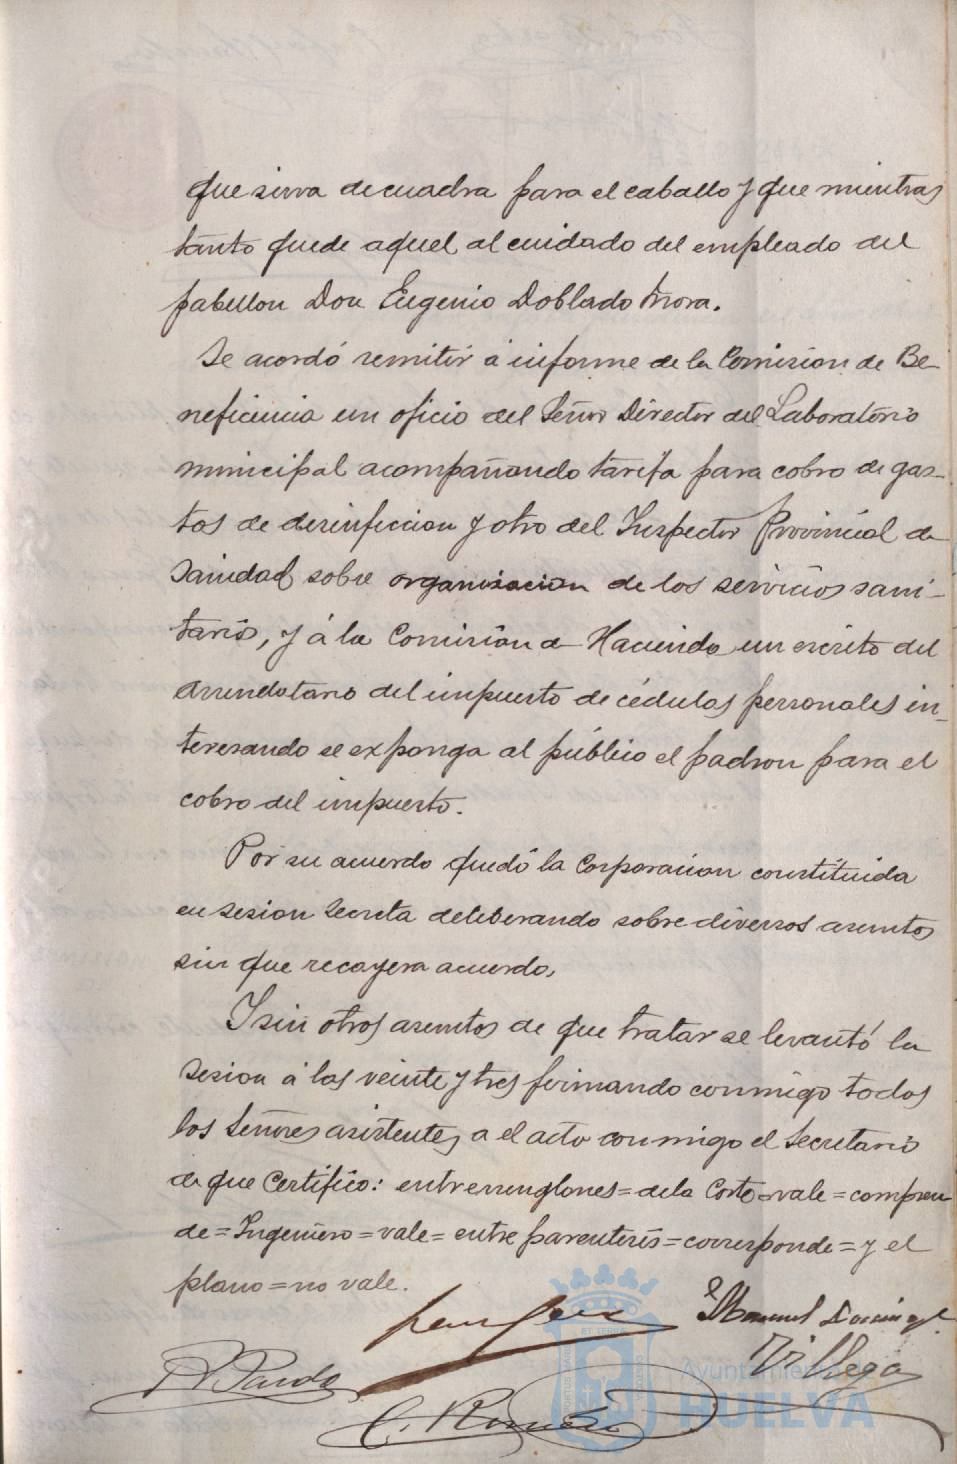 que sirva de cuadra para el caballo y que mientras
tanto quede aquel al cuidado del empleado del
pabellon Don Eugenio Doblado Mora.
Se acordó remitir á informe de la Comision de Be-
neficencia un oficio del Señor Director del Laboratorio
municipal acompañando tarifa para cobro de gas-
tos de desinfeccion y otro del Inspector Provincial de
Sanidad sobre organizacion de los servicios sani-
tarios, y á la Comisión de Hacienda un escrito del
Arrendatario del impuesto de cédulas personales in-
teresando se exponga al público el padron para el
cobro del impuesto.
Por su acuerdo quedó la Corporacion constituida
en sesion secreta deliberando sobre diversos asuntos
sin que recayera acuerdo.
Y sin otros asuntos de que tratar se levantó la
sesion á las veinte y tres firmando conmigo todos
los Señores asistentes a el acto conmigo el Secretario
de que Certifico: entrerrenglones = de la Corta = vale = compren
de = Ingeniero = vale = entre parentesis = corresponde = y el
plano = no vale.
Manuel Domingz
P Pardo
Villega
C. Romero
Ayuntamiento de
HUELVA